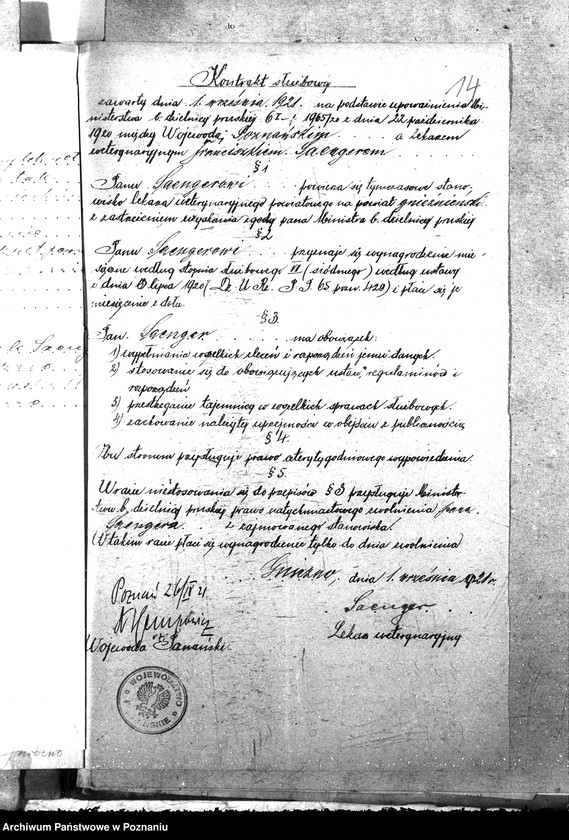 14
Kontrakt służbowy
zawarty dnia 1. września 1921. na podstawie upoważnienia Mi-
nisterstwa b. dzielnicy pruskiej 1965/20 z dnia 22 października
1920 między Wojewodą Poznańskim a lekarzem
weterynaryjnym Franciszkiem Saengerem
§ 1
Panu Saengerowi powierza się tymczasowo stano-
wisko lekarza weterynaryjnego powiatowego na powiat gnieźnieński
z zastrzeżeniem uzyskania zgody pana Ministra b. dzielnicy pruskiej
§ 2
Panu Saengerowi przyznaje się wynagrodzenie mie-
sięczne według stopnia służbowego VII (siódmego) według ustawy
z dnia lipca 1920 (Dz. U. Rz. P. 65 poz. 429) i płaci się je
miesięcznie z dołu.
§ 3.
Pan Saenger ma obowiązek:
1) wypełniania wszelkich zleceń i rozporządzeń jemu danych.
2) stosowanie się do obowiązujących ustaw, regulaminów i
rozporządzeń
3) przestrzeganie tajemnicy w wszelkich sprawach służbowych.
4) zachowanie należytej uprzejmości w obejściu z publicznością
§ 4.
Obu stronom przysługuje prawo czterytygodniowego wypowiedzenia.
§ 5.
W razie niestosowania się do przepisów § 3 przysługuje Minister-
stwu b. dzielnicy pruskiej prawo natychmiastowego zwolnienia Pana
Saengera z zajmowanego stanowiska.
(W takim razie płaci się wynagrodzenie tylko do dnia zwolnienia)
Gniezno, dnia 1. września 1921 r.
Poznań 26/IV 21
Saenger
Lekarz weterynaryjny
Wojewoda Poznański.
WOJEWÓDZTWO
Archiwum Państwowe w Poznaniu